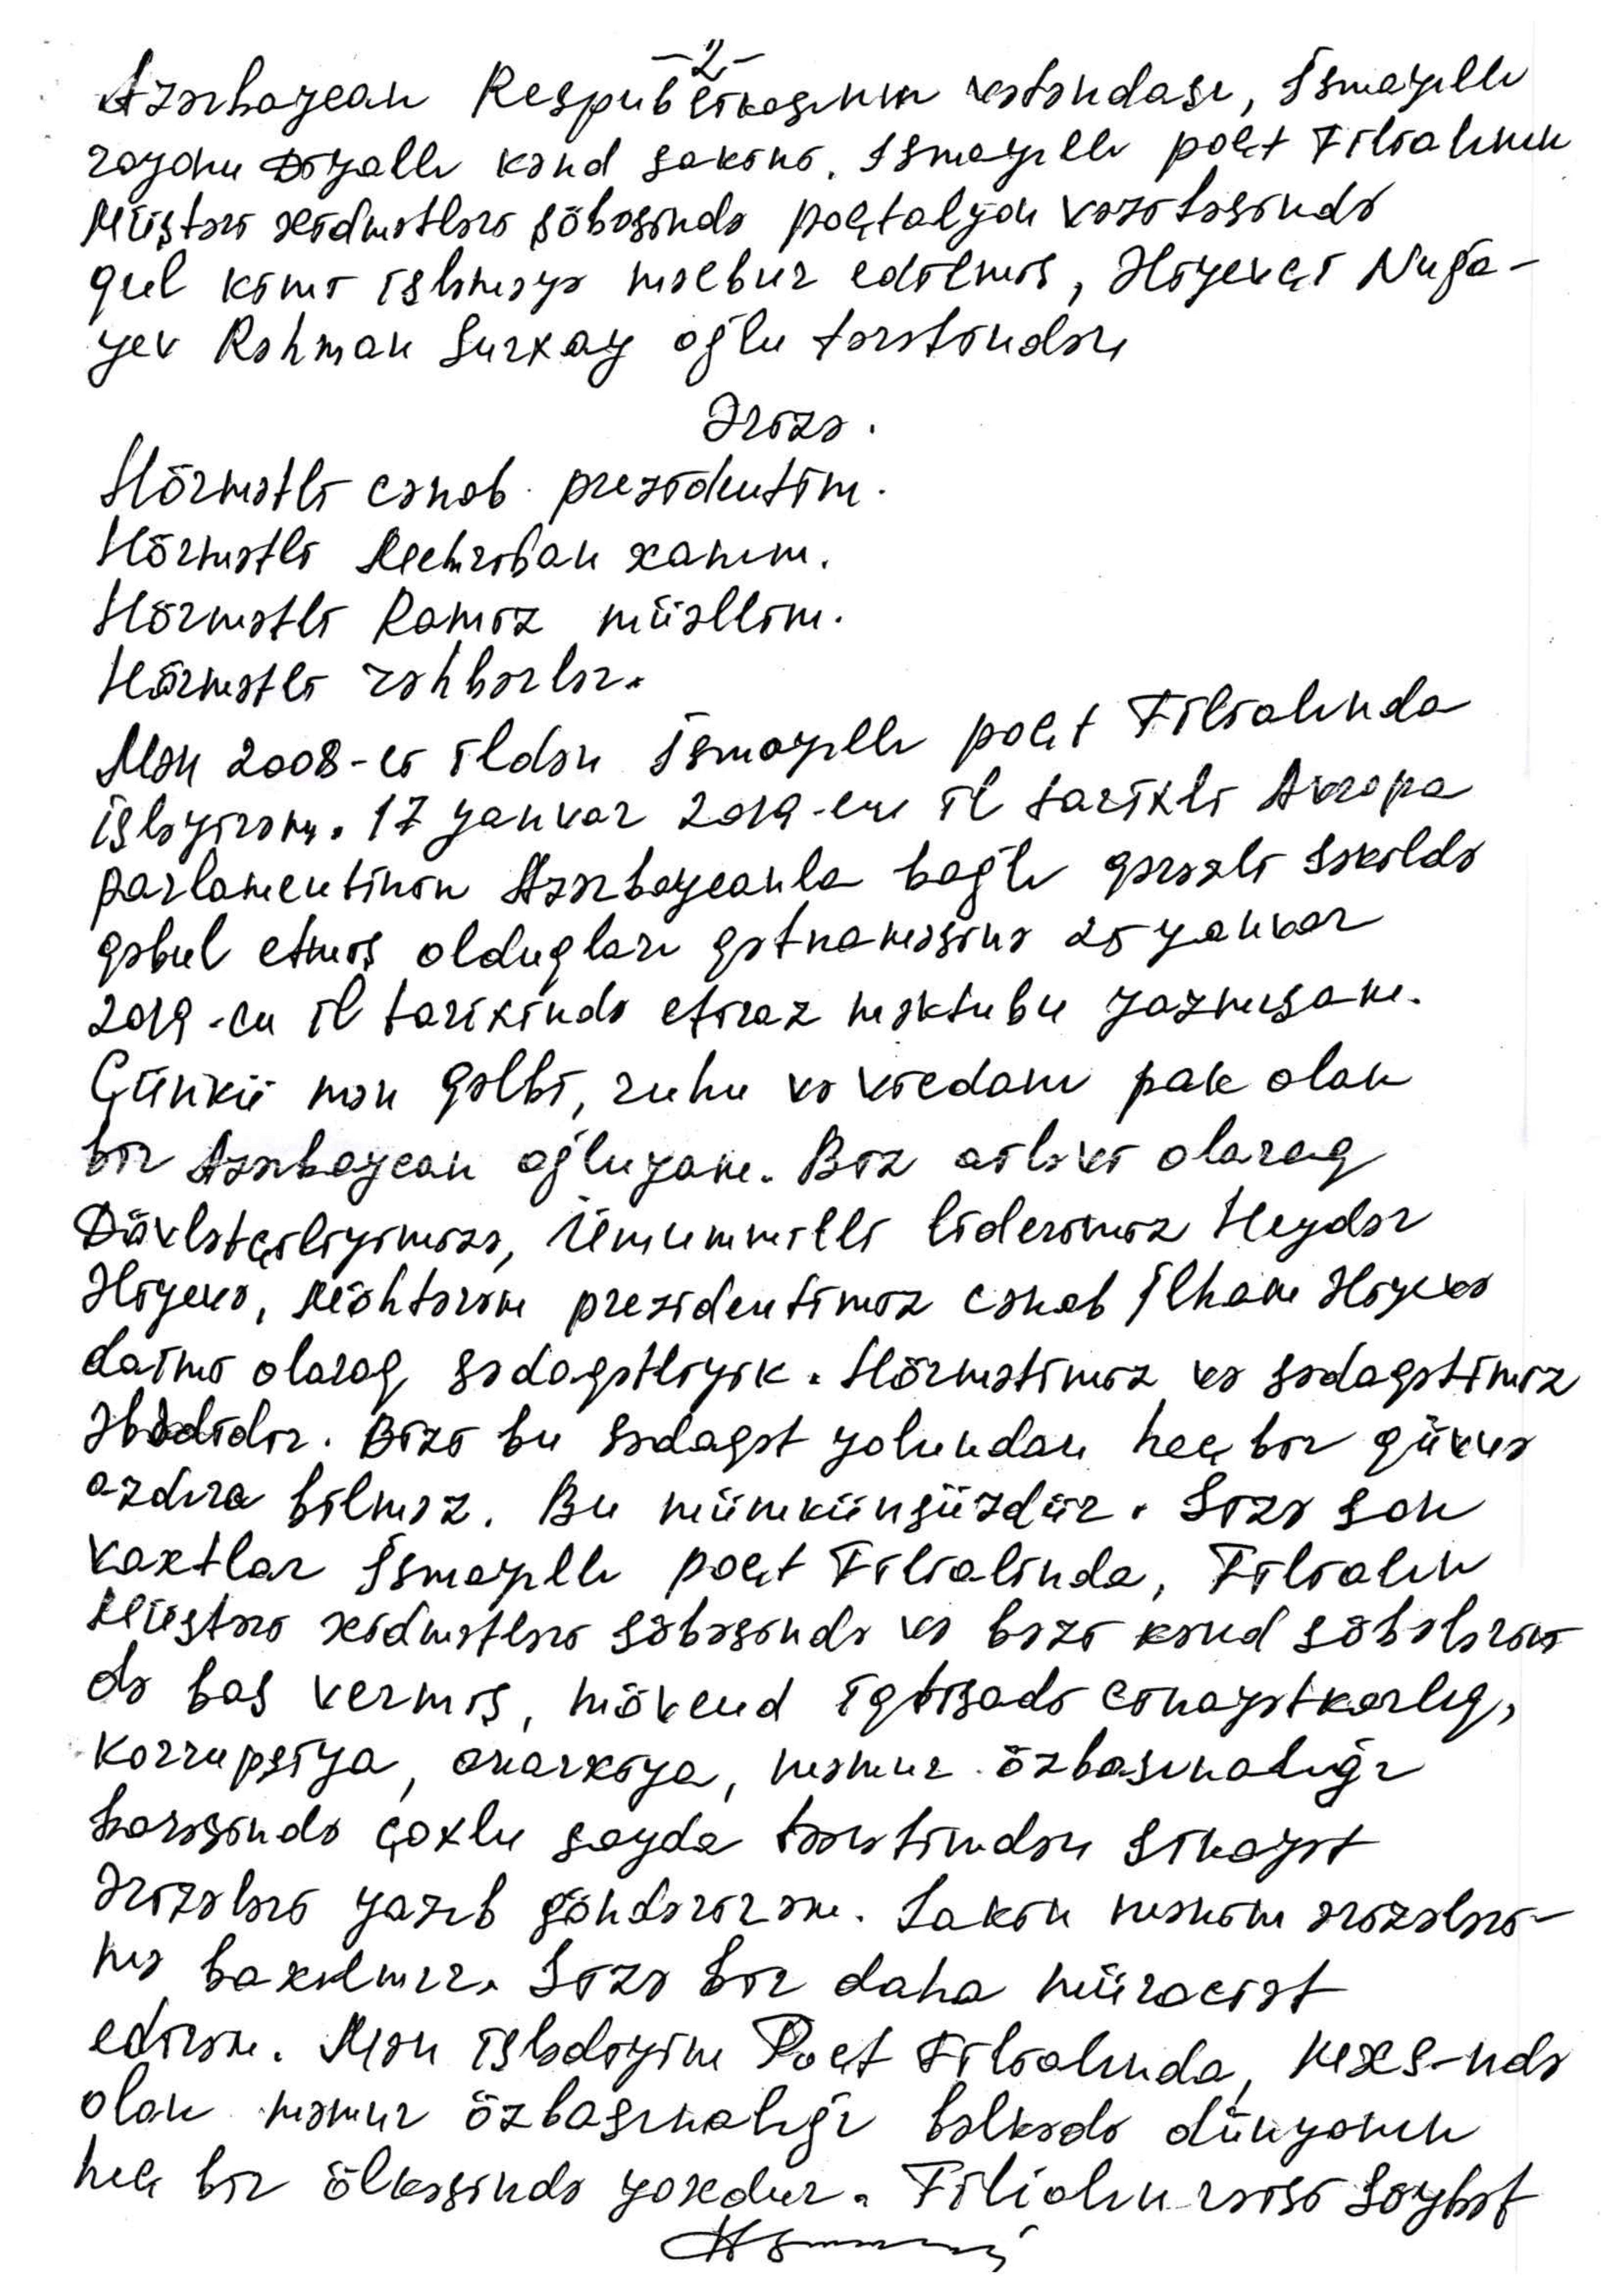 -2-
Azərbaycan Respublikasının vətəndaşı, İsmayıllı
rayonu Diyallı kənd sakini. İsmayıllı poçt Filialının
Müştəri xidmətləri şöbəsində poçtalyon vəzifəsində
qul kimi işləməyə məcbur edilmiş, Əliyevçi Nuğa-
yev Rəhman Surxay oğlu tərəfindən
Ərizə.
Hörmətli cənab prezidentim.
Hörmətli Mehriban xanım.
Hörmətli Ramiz müəllim.
Hörmətli rəhbərlər.
Mən 2008-ci ildən İsmayıllı poçt Filialında
işləyirəm. 17 yanvar 2019-cu il tarixli Avropa
parlamentinin Azərbaycanla bağlı qərəzli şəkildə
qəbul etmiş olduqları qətnaməsinə 25 yanvar
2019-cu il tarixində etiraz məktubu yazmışam.
Çünkü mən qəlbi, ruhu və vicdanı pak olan
bir Azərbaycan oğluyam. Biz ailəvi olaraq
Dövlətçiliyimizə, Ümummilli liderimiz Heydər
Əliyevə, Möhtərəm prezidentimiz cənab İlham Əliyevə
daimi olaraq sədaqətliyik. Hörmətimiz və sədaqətimiz
əbədidir. Bizi bu sədaqət yolundan heç bir qüvvə
azdıra bilməz. Bu mümkünsüzdür. Sizə son
vaxtlar İsmayıllı poçt Filialinda, Filialın
Müştəri xidmətləri şöbəsində və bəzi kənd şöbələrin
də baş vermiş, mövcud iqtisadi cinayətkarlıq,
korrupsiya, anarxiya, məmur özbaşınalığı
barəsində çoxlu sayda tərəfimdən şikayət
ərizələri yazıb göndərirəm. Lakin mənim ərizələri-
mə baxılmır. Sizə bir daha müraciət
edirəm. Mən işlədiyim Poçt Filialında, MXŞ-ndə
olan məmur özbaşınalığı bəlkədə dünyanın
heç bir ölkəsində yoxdur. Filialın rəisi